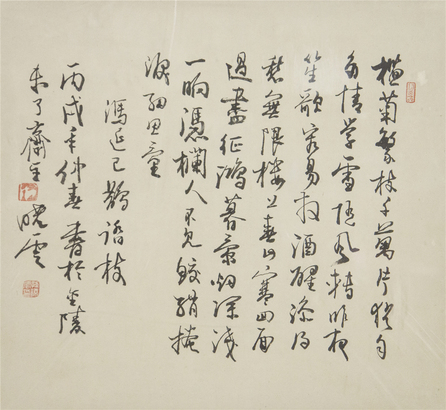 梅落繁枝千萬片猶自
多情學雪隨風轉昨夜
笙歌容易散酒醒添得
愁無限樓上春山寒四面
過盡征鴻暮景烟深淺
一晌憑欄人不見鮫綃掩
淚細思量
馮延巳鵲踏枝
丙戌年仲春書於金陵
未了齋主曉雲